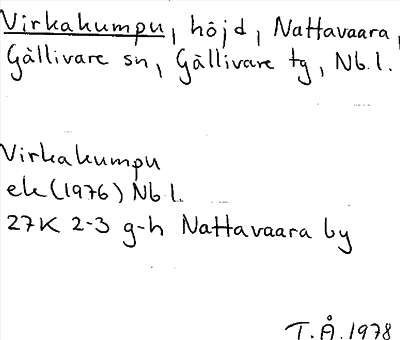 Virkakumpu, höjd, Nattavaara,
Gällivare sn, Gällivare tg, Nb.l.
Virkakumpu
ek (1976) Nb l.
27K 2-3 g-h Nattavaara by
T.Å.1978